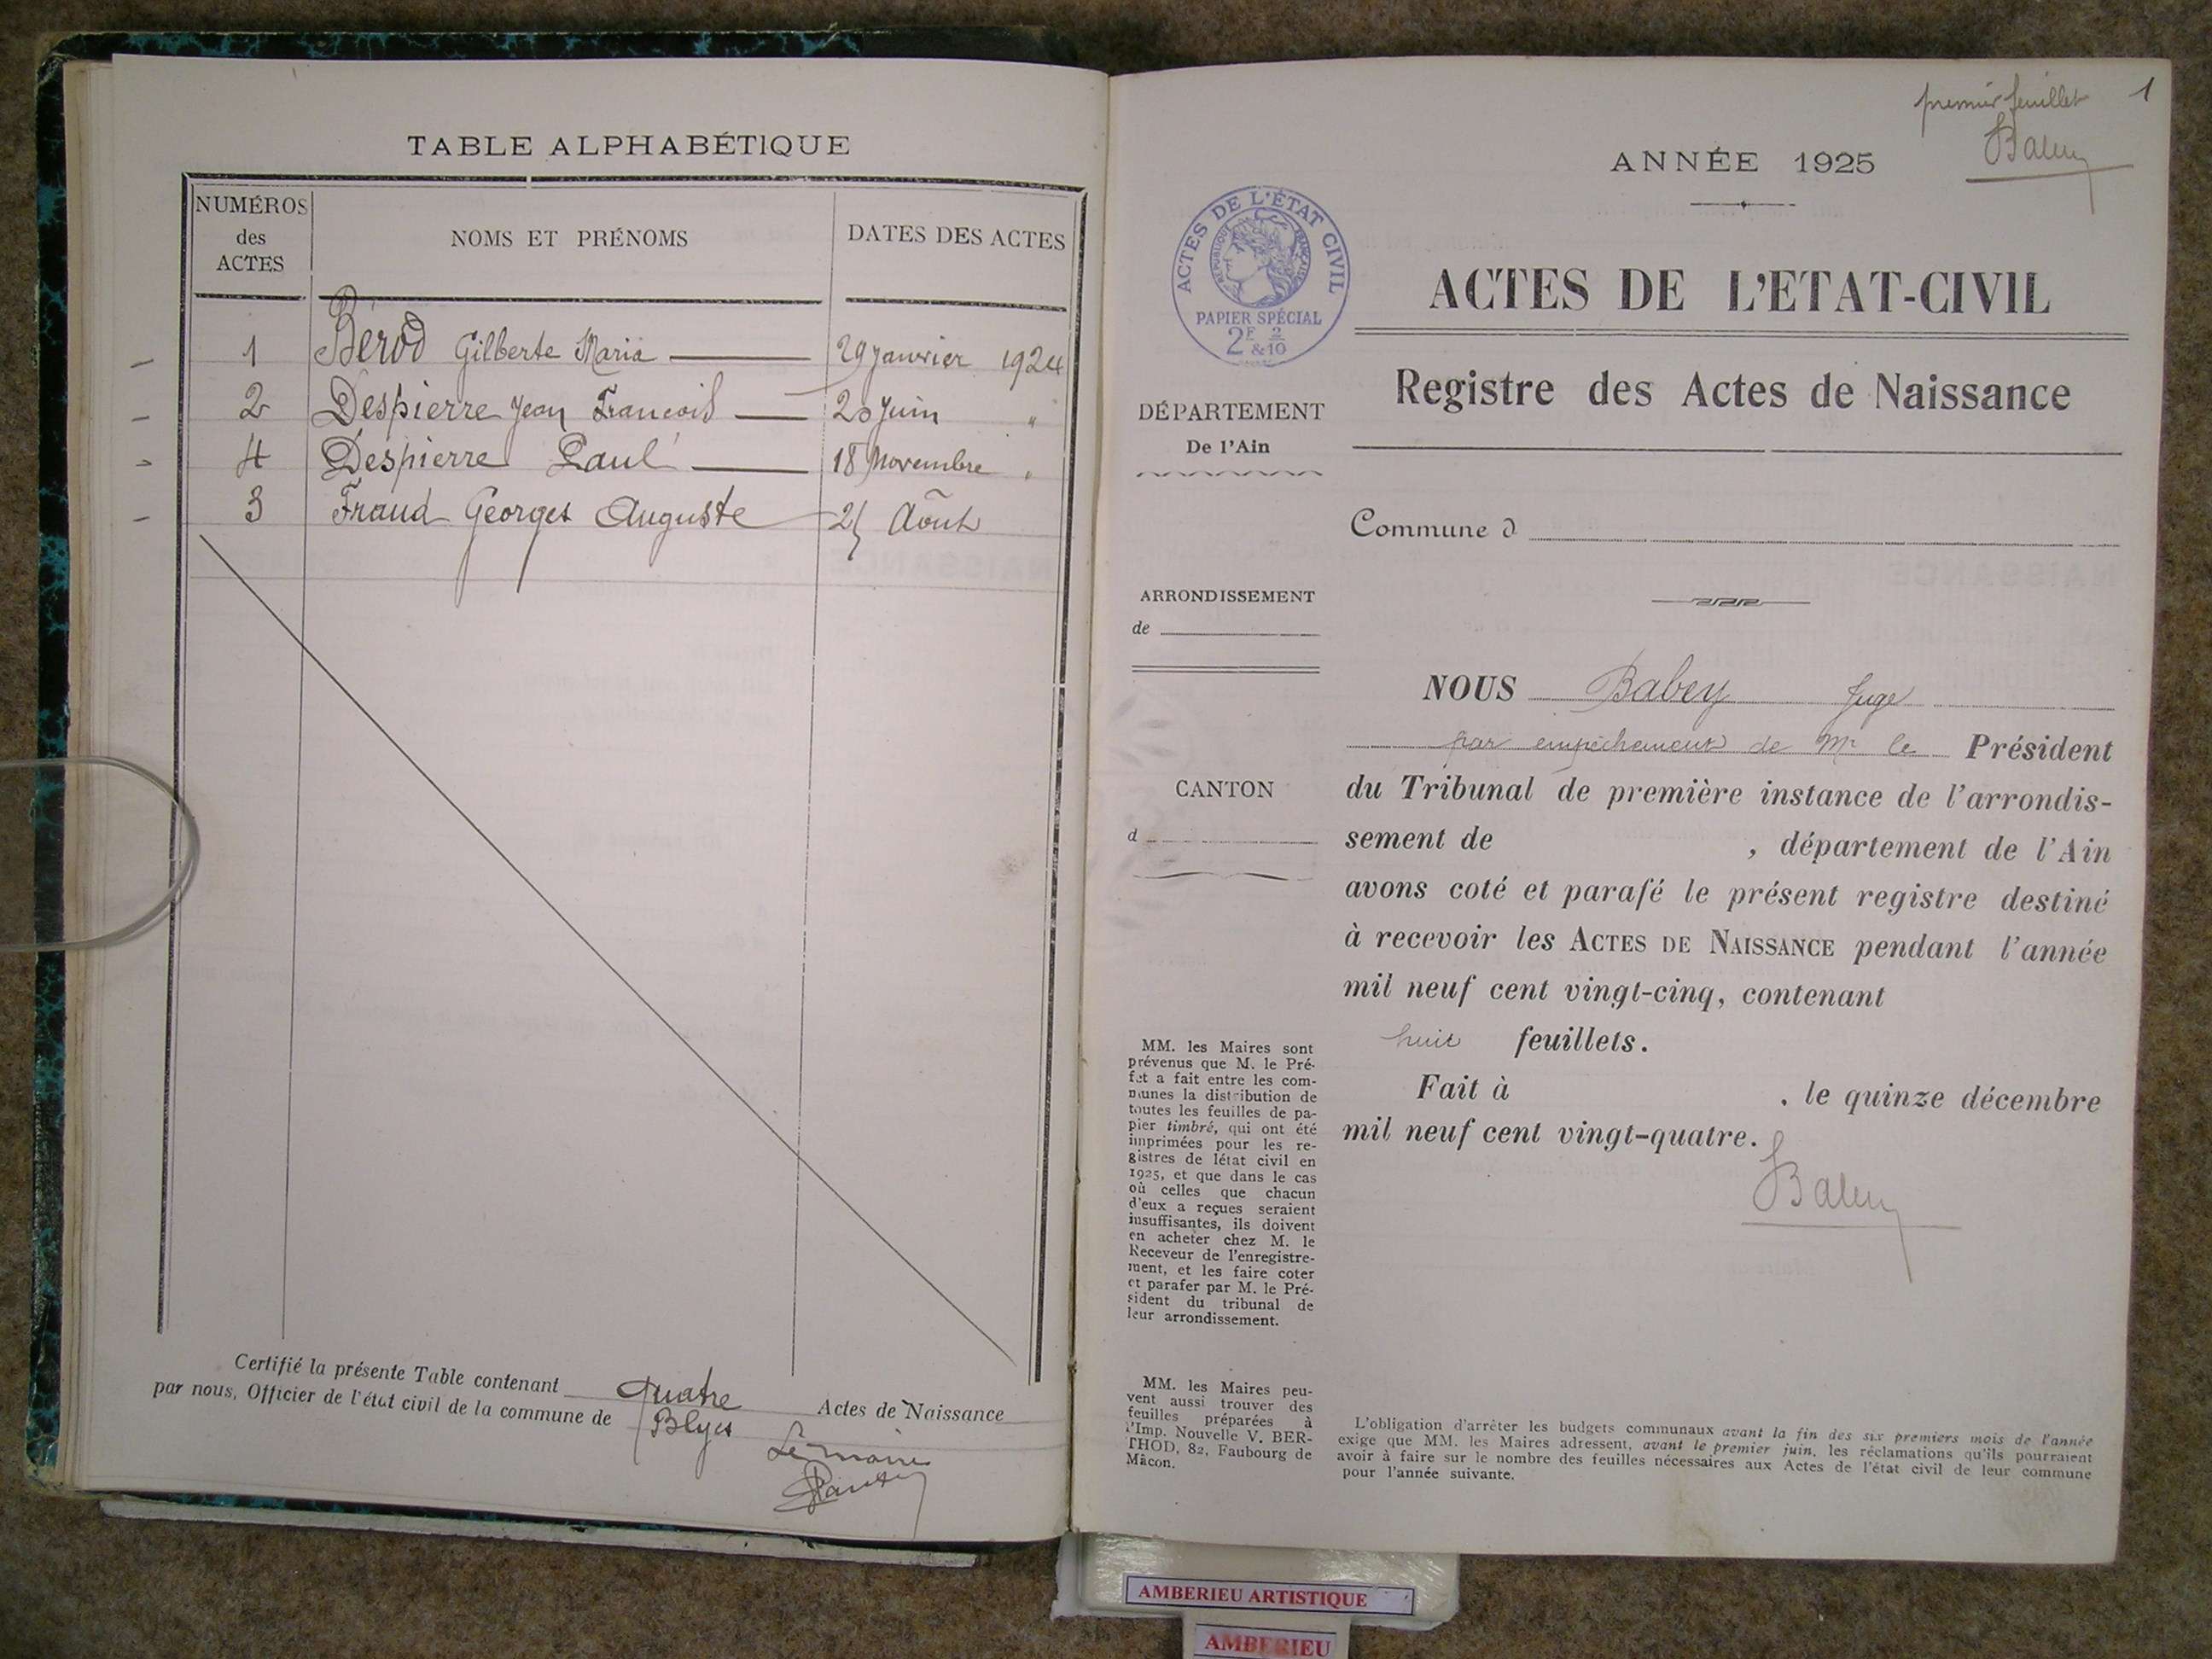 TABLE ALPHABÉTIQUE
NUMÉROS
des
ACTES
NOMS ET PRÉNOMS
DATES DES ACTES
1 Bérod Gilberte Maria 29 janvier 1924
2 Despierre Jean François 20 Juin "
4 Despierre Paul 18 Novembre "
3 Fraud Georges Auguste Août
Certifié la présente Table contenant quatre Actes de Naissance
par nous, Officier de l'état civil de la commune de Blyes
Le maire
premier feuillet 1
Babey
ANNÉE 1925
ACTES DE L'ÉTAT CIVIL
RÉPUBLIQUE FRANÇAISE
PAPIER SPÉCIAL
2F 2
&10
ACTES DE L'ETAT-CIVIL
Registre des Actes de Naissance
DÉPARTEMENT
De l'Ain
Commune d
ARRONDISSEMENT
de
CANTON
d
NOUS Babey Juge
par empêchement de Mr le Président
du Tribunal de première instance de l'arrondis-
sement de , département de l'Ain
avons coté et parafé le présent registre destiné
à recevoir les ACTES DE NAISSANCE pendant l'année
mil neuf cent vingt-cinq, contenant
huit feuillets.
Fait à , le quinze décembre
mil neuf cent vingt-quatre.
Babey
MM. les Maires sont
prévenus que M. le Pré-
fet a fait entre les com-
munes la distribution de
toutes les feuilles de pa-
pier timbré, qui ont été
imprimées pour les re-
gistres de létat civil en
1925, et que dans le cas
où celles que chacun
d'eux a reçues seraient
insuffisantes, ils doivent
en acheter chez M. le
Receveur de l'enregistre-
ment, et les faire coter
et parafer par M. le Pré-
sident du tribunal de
leur arrondissement.
MM. les Maires peu-
vent aussi trouver des
feuilles préparées à
l'Imp. Nouvelle V. BER-
THOD, 82, Faubourg de
Mâcon.
L'obligation d'arrêter les budgets communaux avant la fin des six premiers mois de l'année
exige que MM. les Maires adressent, avant le premier juin, les réclamations qu'ils pourraient
avoir à faire sur le nombre des feuilles nécessaires aux Actes de l'état civil de leur commune
pour l'année suivante.
AMBERIEU ARTISTIQUE
AMBERIEU